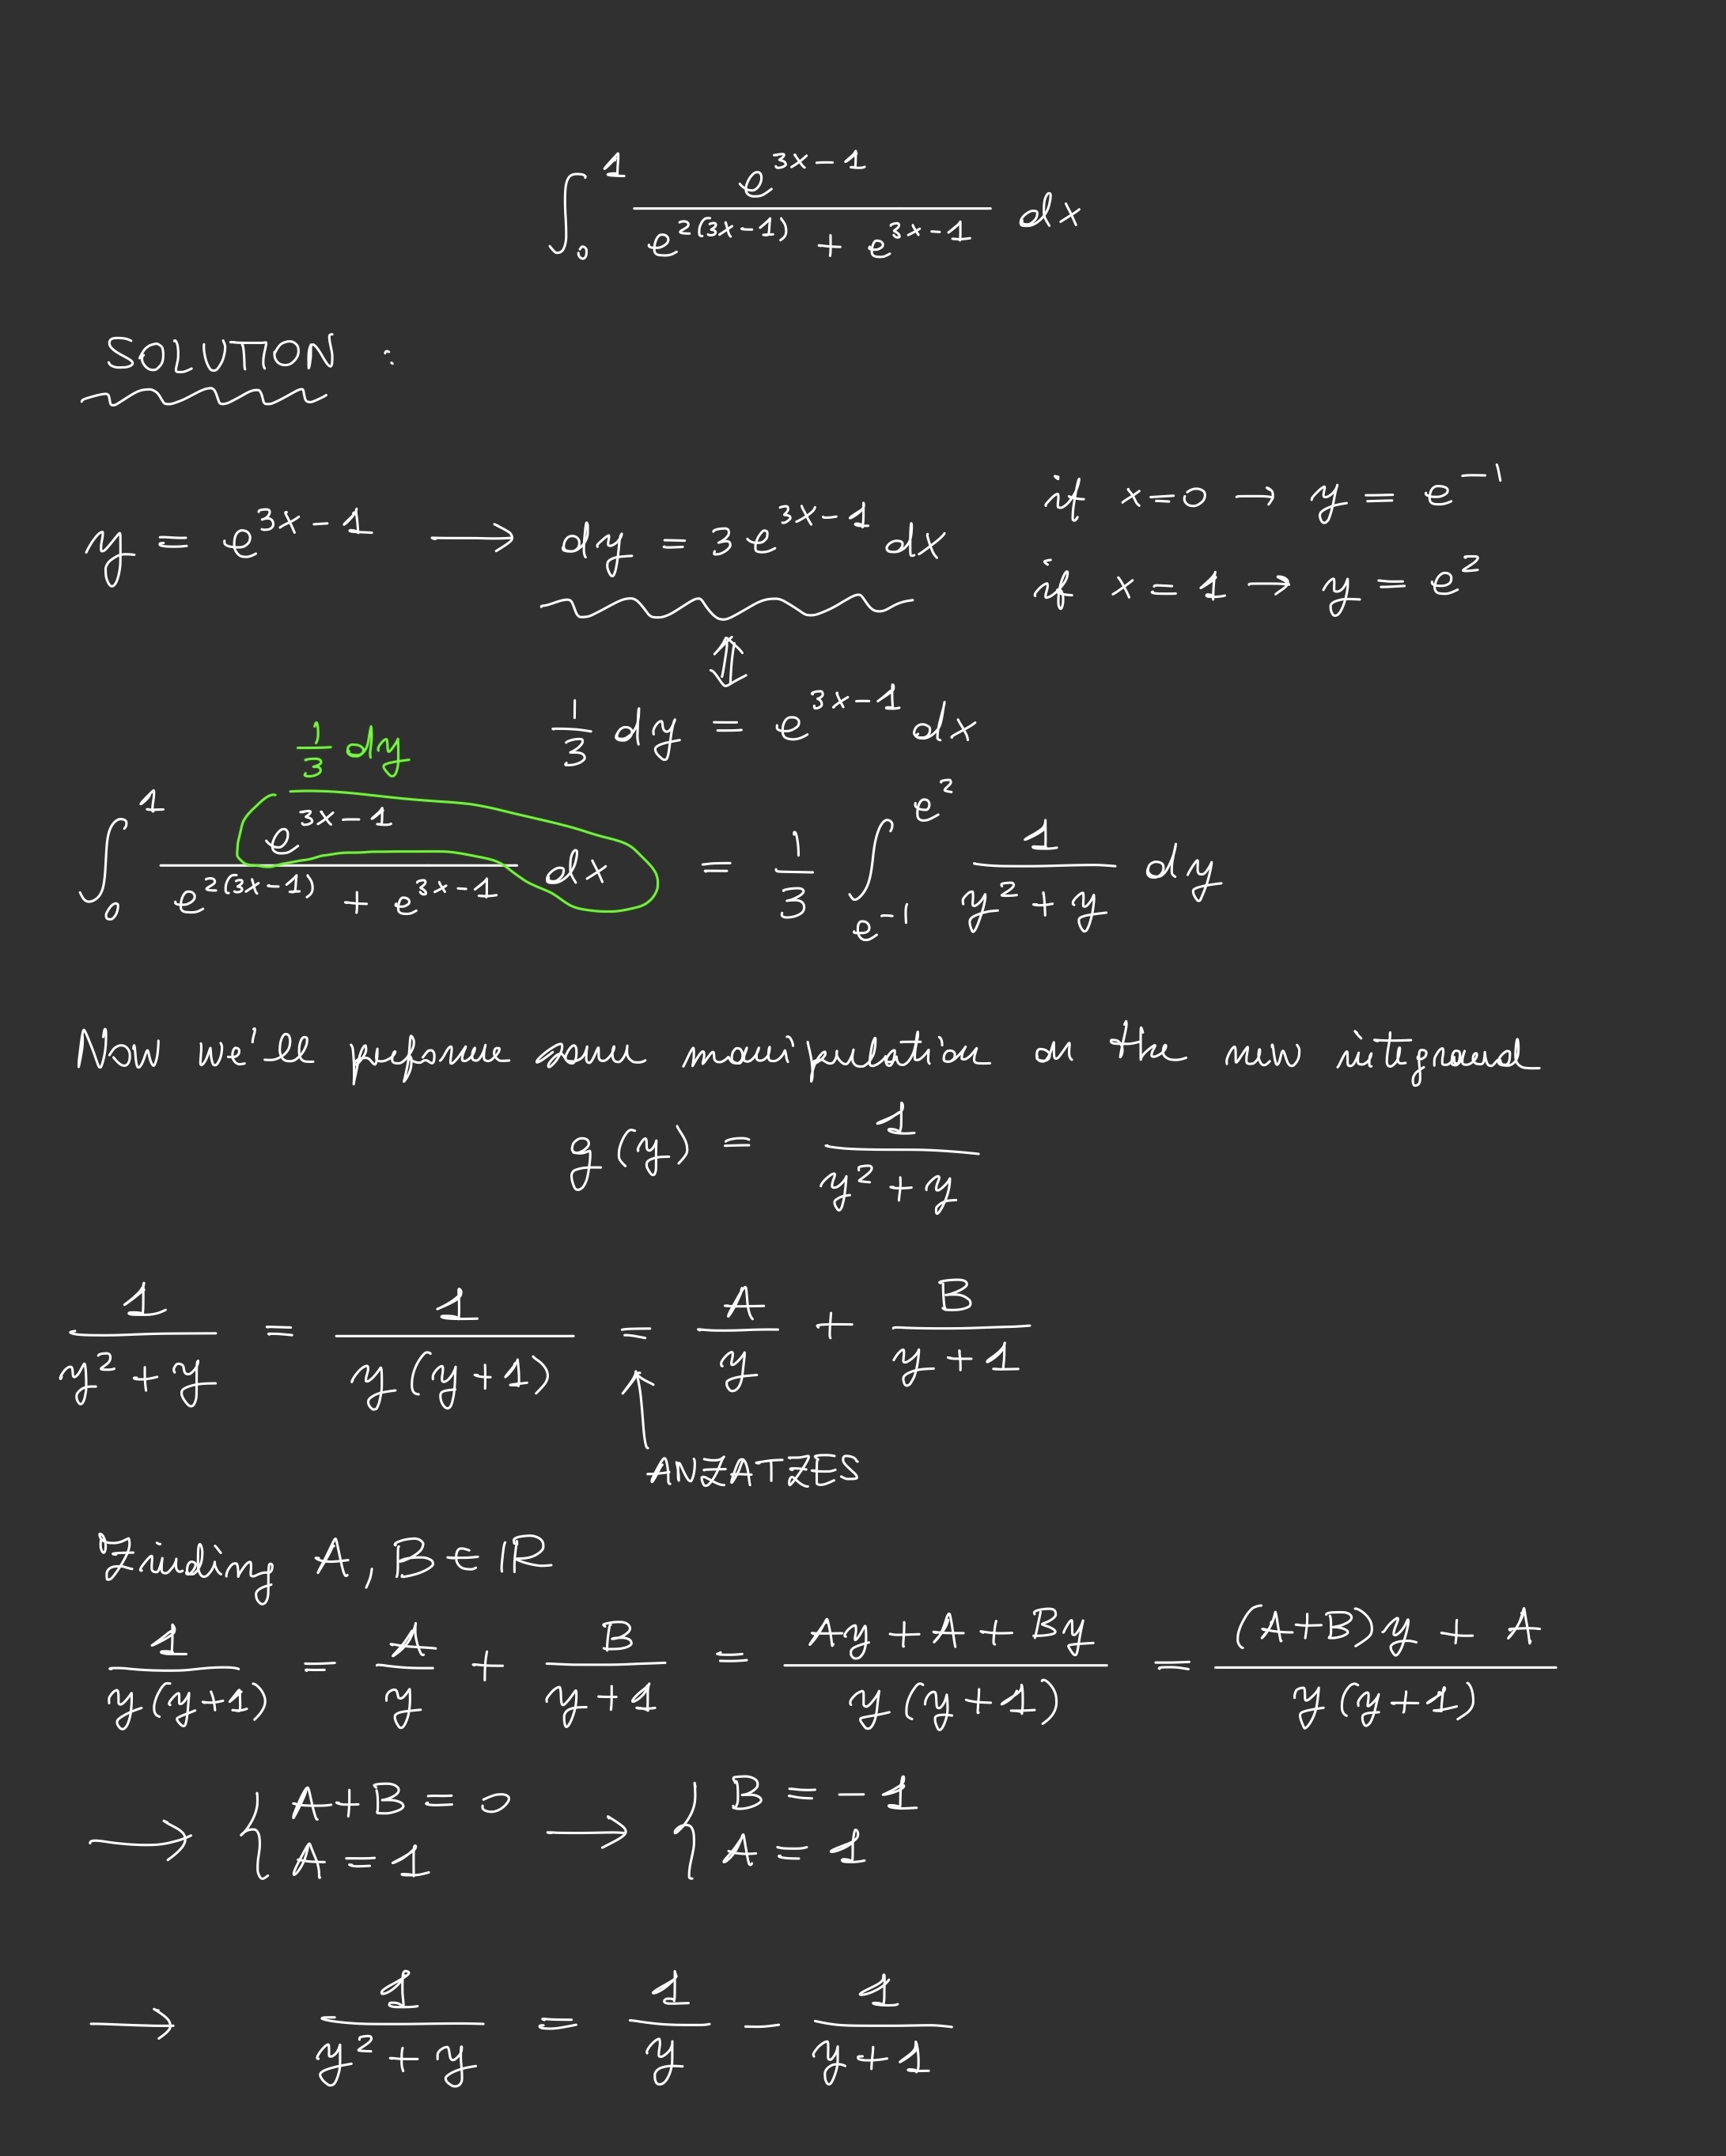 ∫₀¹ e^{3x-1} / (e^{2(3x-1)} + e^{3x-1}) dx
SOLUTION :
y = e^{3x-1} → dy = 3e^{3x-1} dx
if x=0 → y = e^{-1}
if x=1 → y = e^2
⇕
1/3 dy = e^{3x-1} dx
1/3 dy
∫₀¹ e^{3x-1} / (e^{2(3x-1)} + e^{3x-1}) dx = 1/3 ∫_{e^{-1}}^{e^2} 1/(y^2+y) dy
Now we'll perform some manipulation on the new integrand
g(y) = 1/(y^2+y)
1/(y^2+y) = 1/(y(y+1)) = A/y + B/(y+1)
ANZATZES
Finding A, B ∈ ℝ
1/(y(y+1)) = A/y + B/(y+1) = (Ay+A+By)/(y(y+1)) = ((A+B)y + A)/(y(y+1))
→ { A+B = 0 → { B = -1
A = 1 A = 1
→ 1/(y^2+y) = 1/y - 1/(y+1)